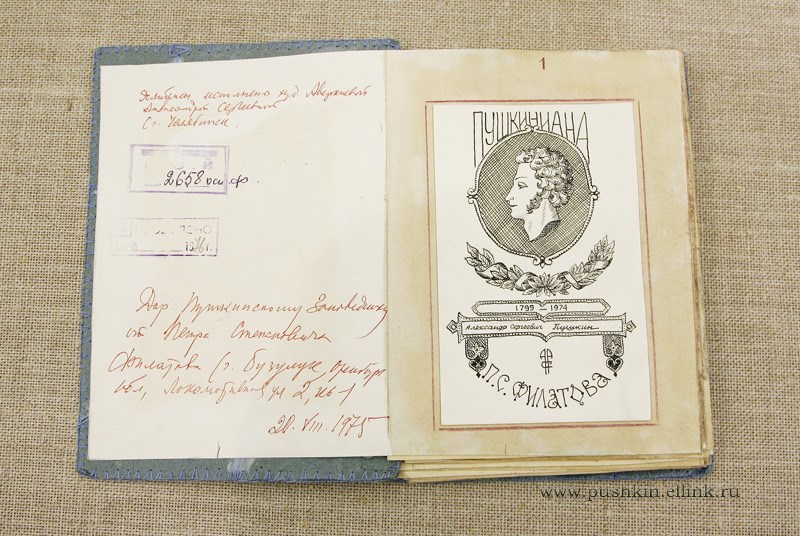 Экслибрис исполнена худ Аверкиевым
Дмитрием Сергеевичем
(г. Челябинск
2658 осн. ф.
19 г.
Дар Пушкинскому Заповеднику
от Петра Степановича
Филатова (г. Бузулук, Оренбург
обл, Локомотивная ул 2, кв-1
20. VIII. 1975
1
ПУШКИНИАНА
1799 – 1974
Александр Сергеевич Пушкин
П.С. ФИЛАТОВА
www.pushkin.ellink.ru